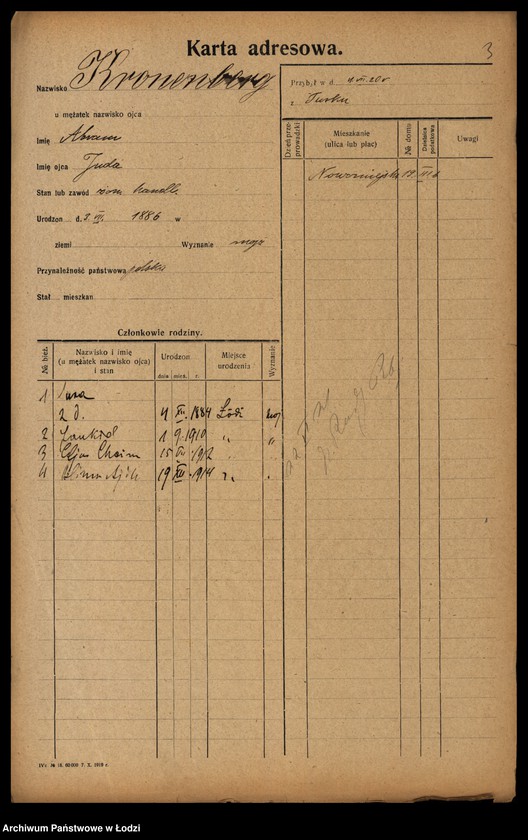 Karta adresowa.
3
Nazwisko Kronenberg
u mężatek nazwisko ojca
Imię Abram
Imię ojca Juda
Stan lub zawód handl.
Urodzon d. 3. VII. 1886 w
ziemi Wyznanie mojż
Przynależność państwowa polska
Stał mieszkan
Przybył w d.
z Turku
Dzień przeprowadzki
Mieszkanie (ulica lub plac)
№ domu
Dzielnica podatkowa
Uwagi
Nowomiejska 19 III
Członkowie rodziny.
№ bież.
Nazwisko i imię (u mężatek nazwisko ojca) i stan
Urodzon
dnia mies. r.
Miejsce urodzenia
Wyznanie
1 Sura
z d. 4 XII. 1884 Łódź moj
2 1 9. 1910 „ „
3 Chaim 15 1912
4 19 XII. 1914
IVc № 16. 60000 7. X. 1918 r.
Archiwum Państwowe w Łodzi